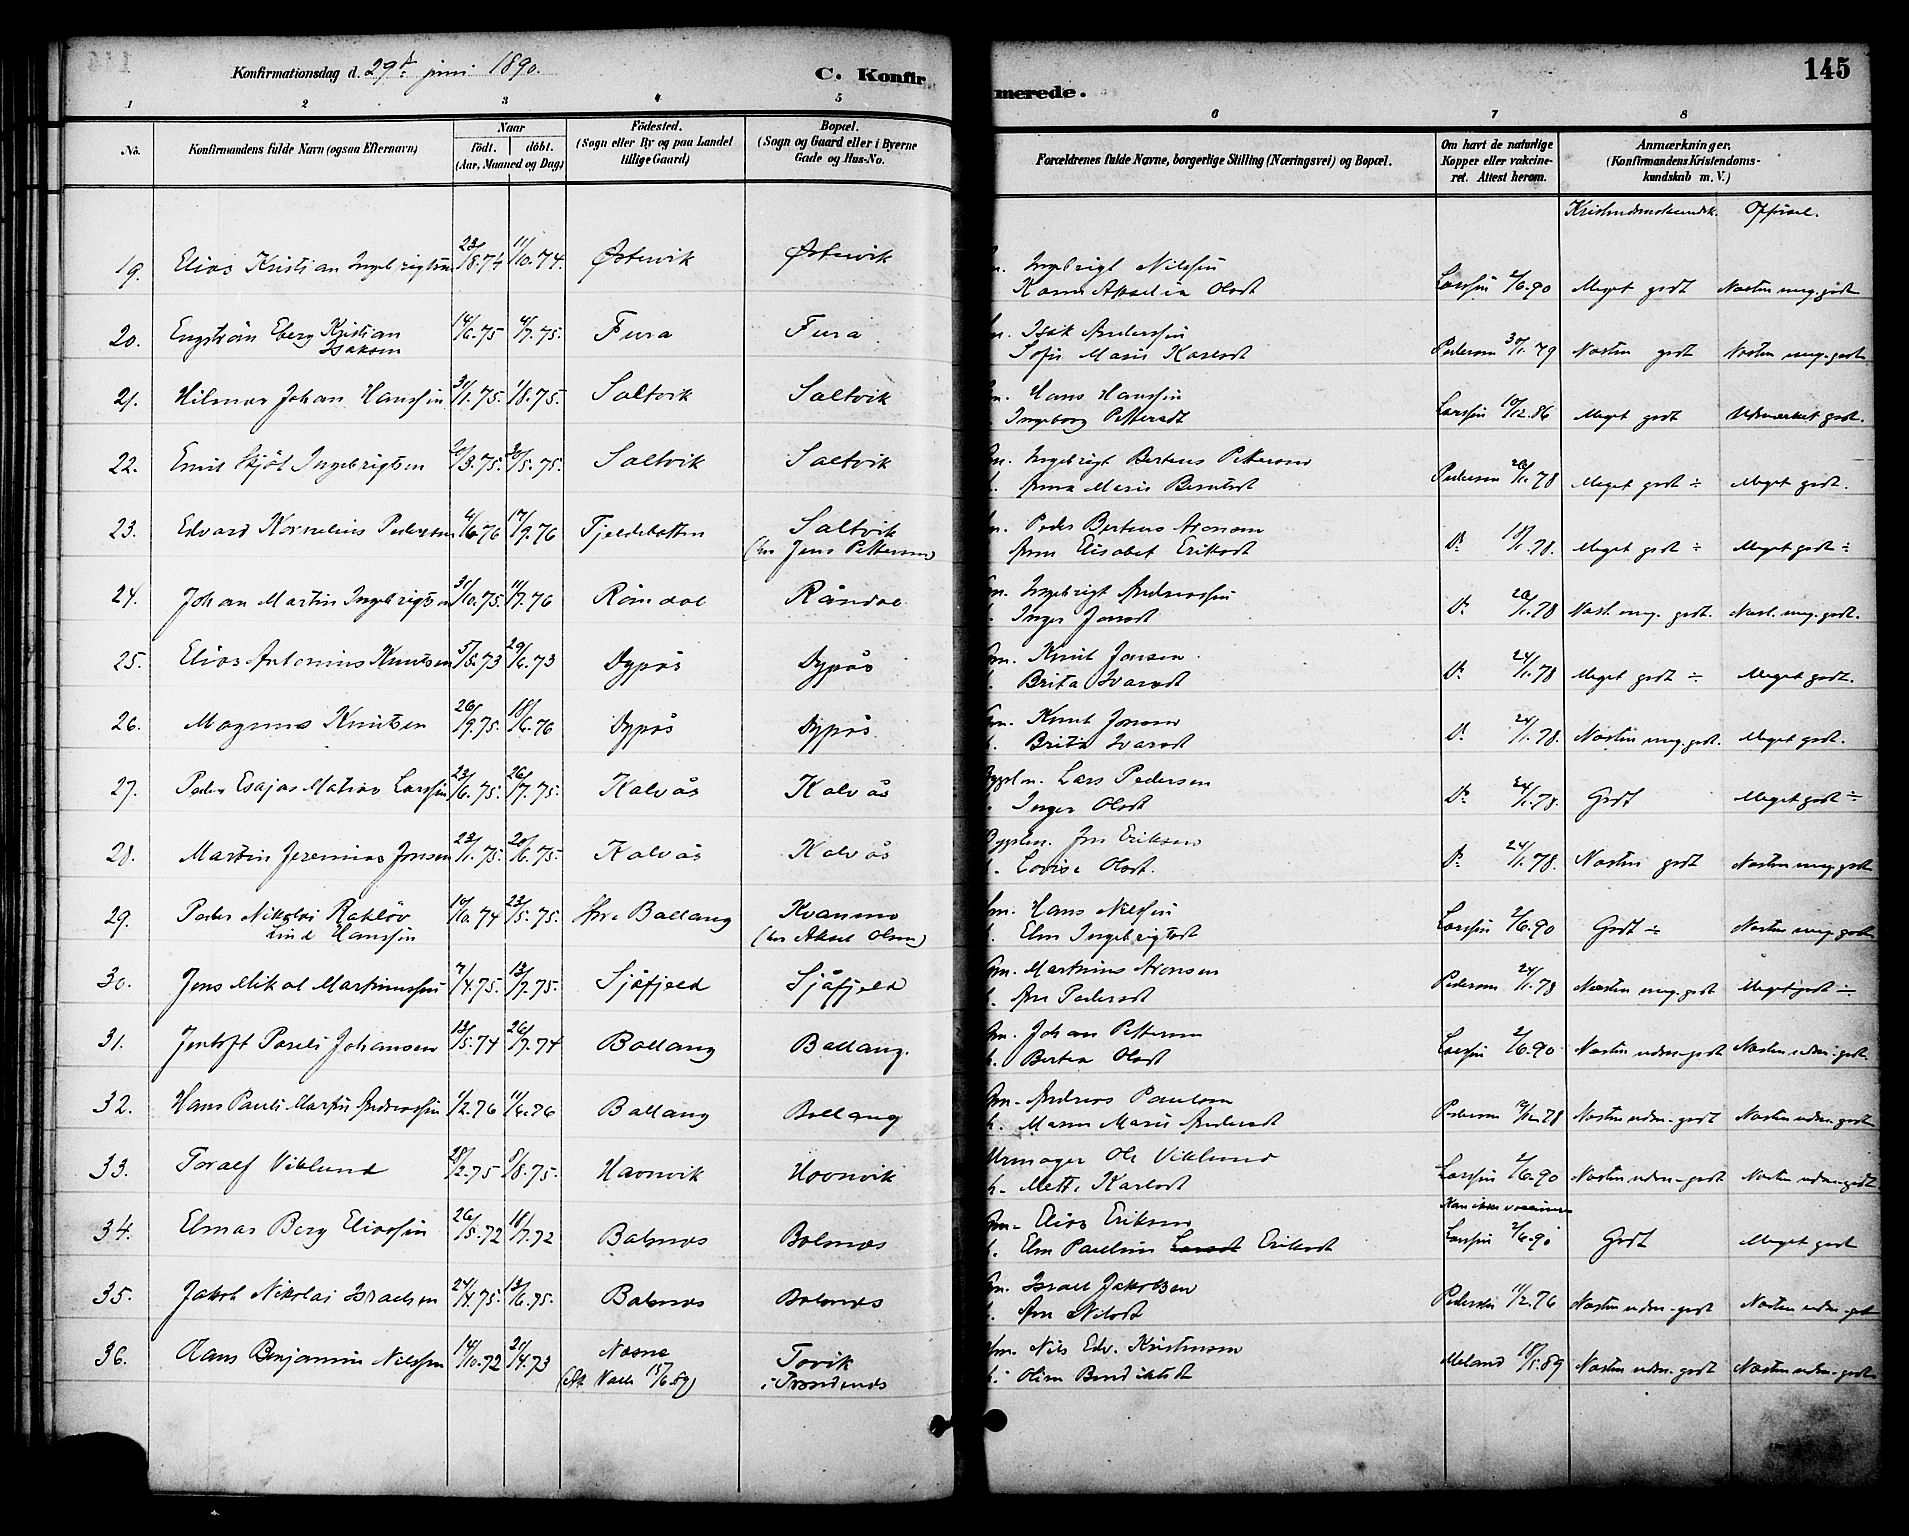 Konfirmationsdag d. 29de juni 1890. C. Konfirmerede. 145
1 2 3 4 5 6 7 8
No. Konfirmandens fulde Navn (ogsaa Efternavn) Naar født. døbt. (Aar, Maaned og Dag) Födested. (Sogn eller By og paa Landet tillige Gaard) Bopæl. (Sogn og Gaard eller i Byerne Gade og Hus-No. Forældrenes fulde Navne, borgerlige Stilling (Næringsvei) og Bopæl. Om havt de naturlige Kopper eller vakcineret. Attest herom. Anmærkninger. (Konfirmandens Kristendomskundskab m. V.)
Kristendomskundsk. Opførsel.
19. Elias Kristian Ingebrigtsen 23/8.74 11/10.74. Østervik Østervik Ingebrigt Nilssen
Olsdt Larssen 2/6.90 Meget godt Næsten meg. godt
20. Engstrøm Eberg Kristian
Isaksen 14/6.75 4/7.75. Fura Fura Isak Anderssen
Sofie Marie Karlsdt Pedersen 30/1.79 Næsten godt Næsten meg. godt
21. Hilmar Johan Hanssen 31/1.75 1/8.75. Saltvik Saltvik Hans Hanssen
Ingeborg Pettersdt Larssen 10/12.86 Meget godt Udmærket godt.
22. Emil Ingebrigtsen 20/3.75. 30/5.75. Saltvik Saltvik Ingebrigt Bertens Pettersen
Anna Marie Berntsdt Pedersen 20/1.78 Meget godt ÷ Meget godt.
23. Edvard Kornelius Pedersen 4/6 76 17/9.76 Fjeldbotten Saltvik
(hos Jens Pettersen) Peder Bertens Aronsen
Ane Elisabet Eriksdt Do 18/1.78. Meget godt ÷ Meget godt ÷
24. Johan Martin Ingebrigtsen 31/10.75. 11/7.76 Råndal Råndal Ingebrigt Andreassen
Inger Jonsdt Do 20/1.78 Næst. meg. godt. Næst. meg. godt.
25. Elias Antonius Knutsen 5/5.73 29/6.73 Dypås Dypås Gm. Knut Jonsen
Brita Ivarsdt Do 24/1.78 Meget godt ÷ Meget godt.
26. Magnus Knutsen 26/9.75. 18/6.76 Dypås Dypås. Gm. Knut Jonsen
h. Brita Ivarsdt Do 24/1.78. Næsten meg. godt. Meget godt.
27. Peder Esajas Matias Larssen 23/6.75. 26/7.75. Kalvås Kalvås Lars Pedersen
Inger Olsdt Do 24/1.78. Godt Meget godt ÷
28. Martin Jeremias Jonsen 23/1.75 20/6.75. Kalvås Kalvås Jon Eriksen
h. Lovise Olsdt. Do 24/1.78. Næsten godt Næsten meg. godt
29. Peder Nikolai
Lind Hanssen 10/10.74 23/5.75. Ballang Kvanmo
(hos Aksel Olsen) Hans Nilssen
Elen Ingebrigtsdt Larssen 2/6.90 Godt ÷ Næsten meg. godt
30. Jens Mikal Martinussen 7/4.75. 13/7.75. Sjåfjeld Sjåfjeld Gm. Martinus Aronsen
h. Ane Pedersdt Pedersen 24/1.78 Næsten meg. godt Meget godt ÷
31. Jentoft Pareli Johansen 13/5.74 26/7.74 Ballang Ballang. Gm. Johan Pettersen
h. Berta Olsdt Larssen 2/6.90 Næsten udm. godt Næsten udm. godt
32. Hans Pauli Martin Andreassen 1/2.76 11/6.76 Ballang Ballang Gm. Andreas Paulsen
h. Maren Marie Andersdt Pedersen 78 Næsten udm. godt Næsten udm. godt
33. Toralf Viklund 28/2.75 8.75. Havnvik Havnvik Urmager Ole Viklund
h. Mette Karlsdt Larssen 2/6.90 Næsten udm. godt Næsten udm. godt
34. Elmar Berg Eliassen 26/5.72 18/7.72 Balsnes Balsnes Gm. Elias Eriksen
h. Elen Pauline Larsdt Eriksdt Kan ikke vaccineres
Larssen 2/6.90 Godt Meget godt
35. Jakob Nikolai Israelsen 24/4.75. 13/6.75. Balsnes Balsnes Gm. Israel Jakobsen
h. Ane Nilsdt Pedersen 11/2.76 Næsten udm. godt Næsten udm. godt
36. Hans Benjamin Nilssen 14/10.72 20/4.73 Nesne
15/6.89) Tovik
i Trondenes Nils Edv. Kristensen
h. Oline Benediktsdt Meland 18/5.89 Næsten udm. godt Næsten udm. godt